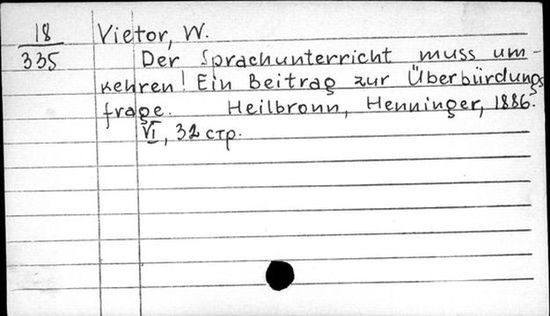 18
335
Vietor, W.
Der Sprachunterricht muss um-
kehren! Ein Beitrag zur Überbürdungs
frage. Heilbronn, Henninger, 1886.
VI, 32 стр.